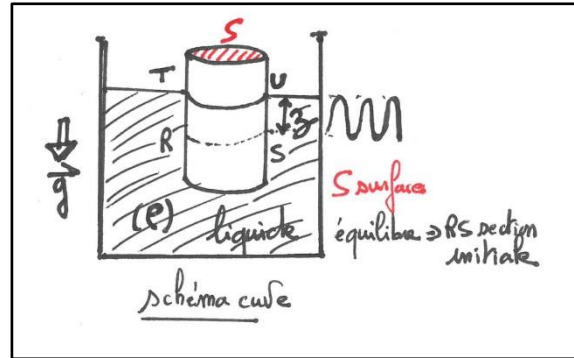 S
T U
z
R S
g
(ρ)
liquide
S surface
équilibre ⇒ RS section
initiale
schéma cuve